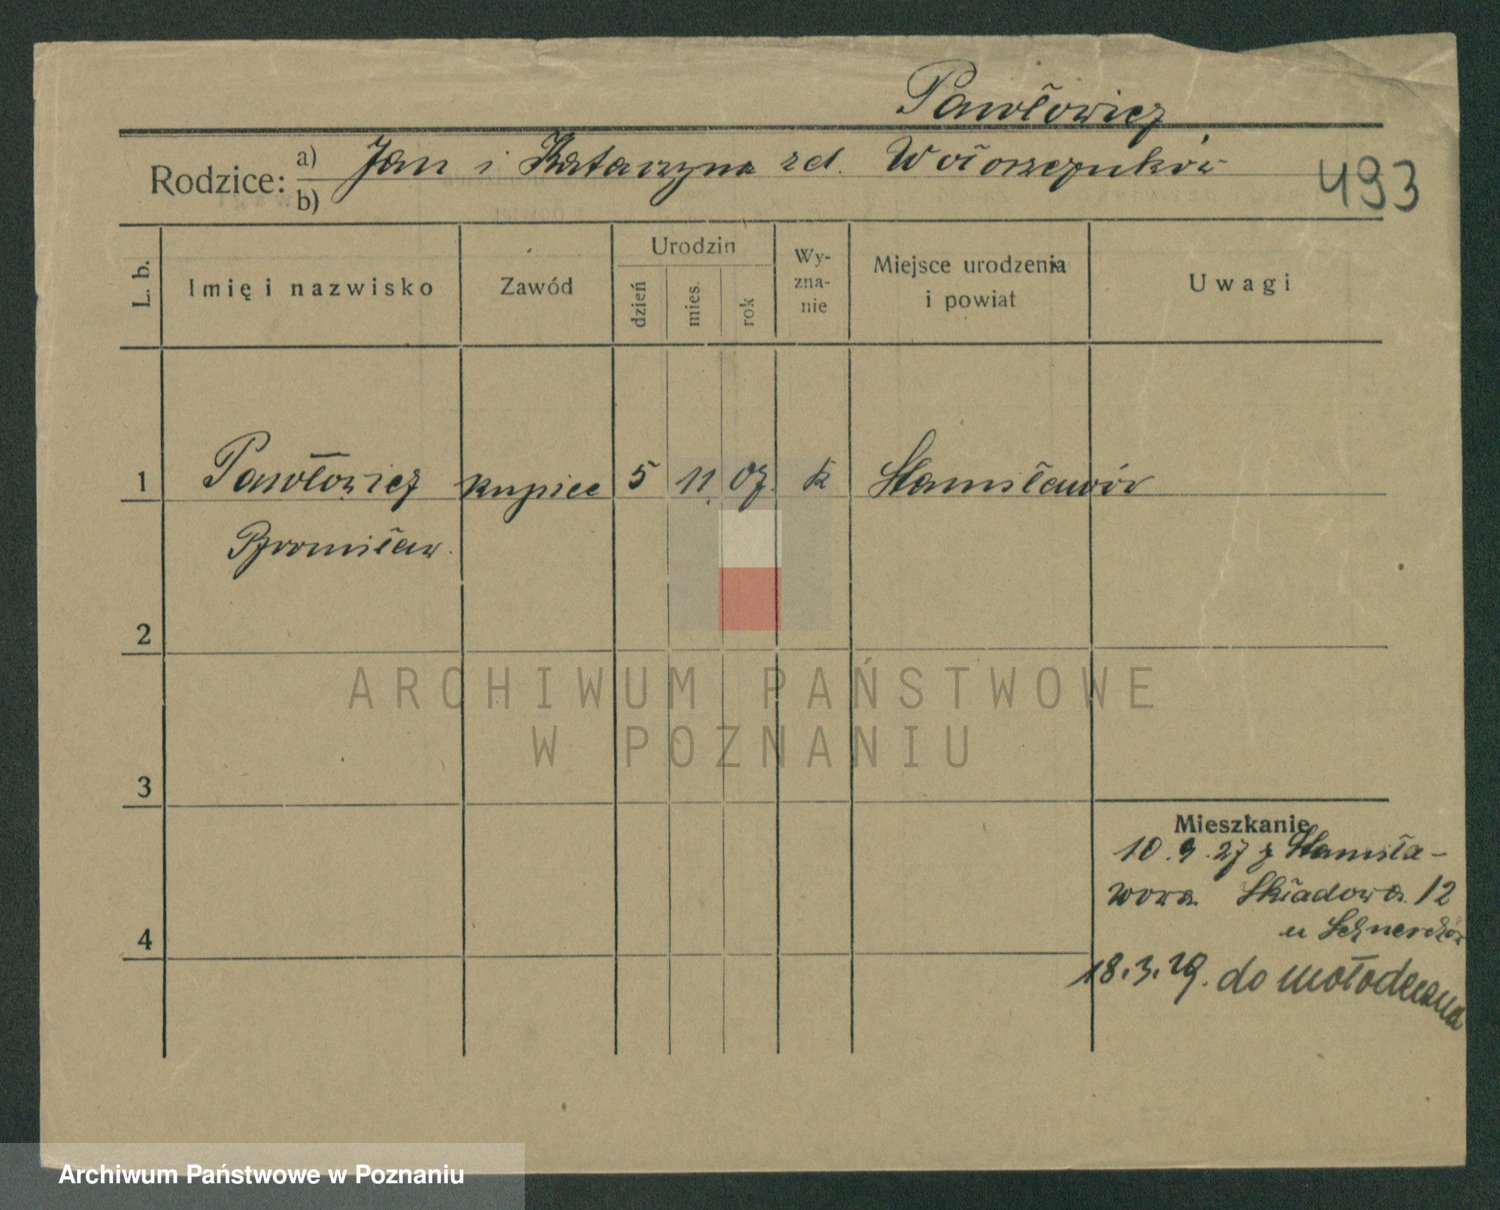 Pawłowicz
Rodzice: a) Jan i Katarzyna zd.
b)
493
L. b.
Imię i nazwisko
Zawód
Urodzin
dzień
mies.
rok
Wy-
zna-
nie
Miejsce urodzenia
i powiat
Uwagi
1 Pawłowicz kupiec 5 11. 07. k Stanisławów
Bronisław.
2
ARCHIWUM PAŃSTWOWE
W POZNANIU
3
Mieszkanie
10.9.27 z Stanisła-
wowa Składowa 12
4
u
18.3.29. do Mołodeczna
Archiwum Państwowe w Poznaniu